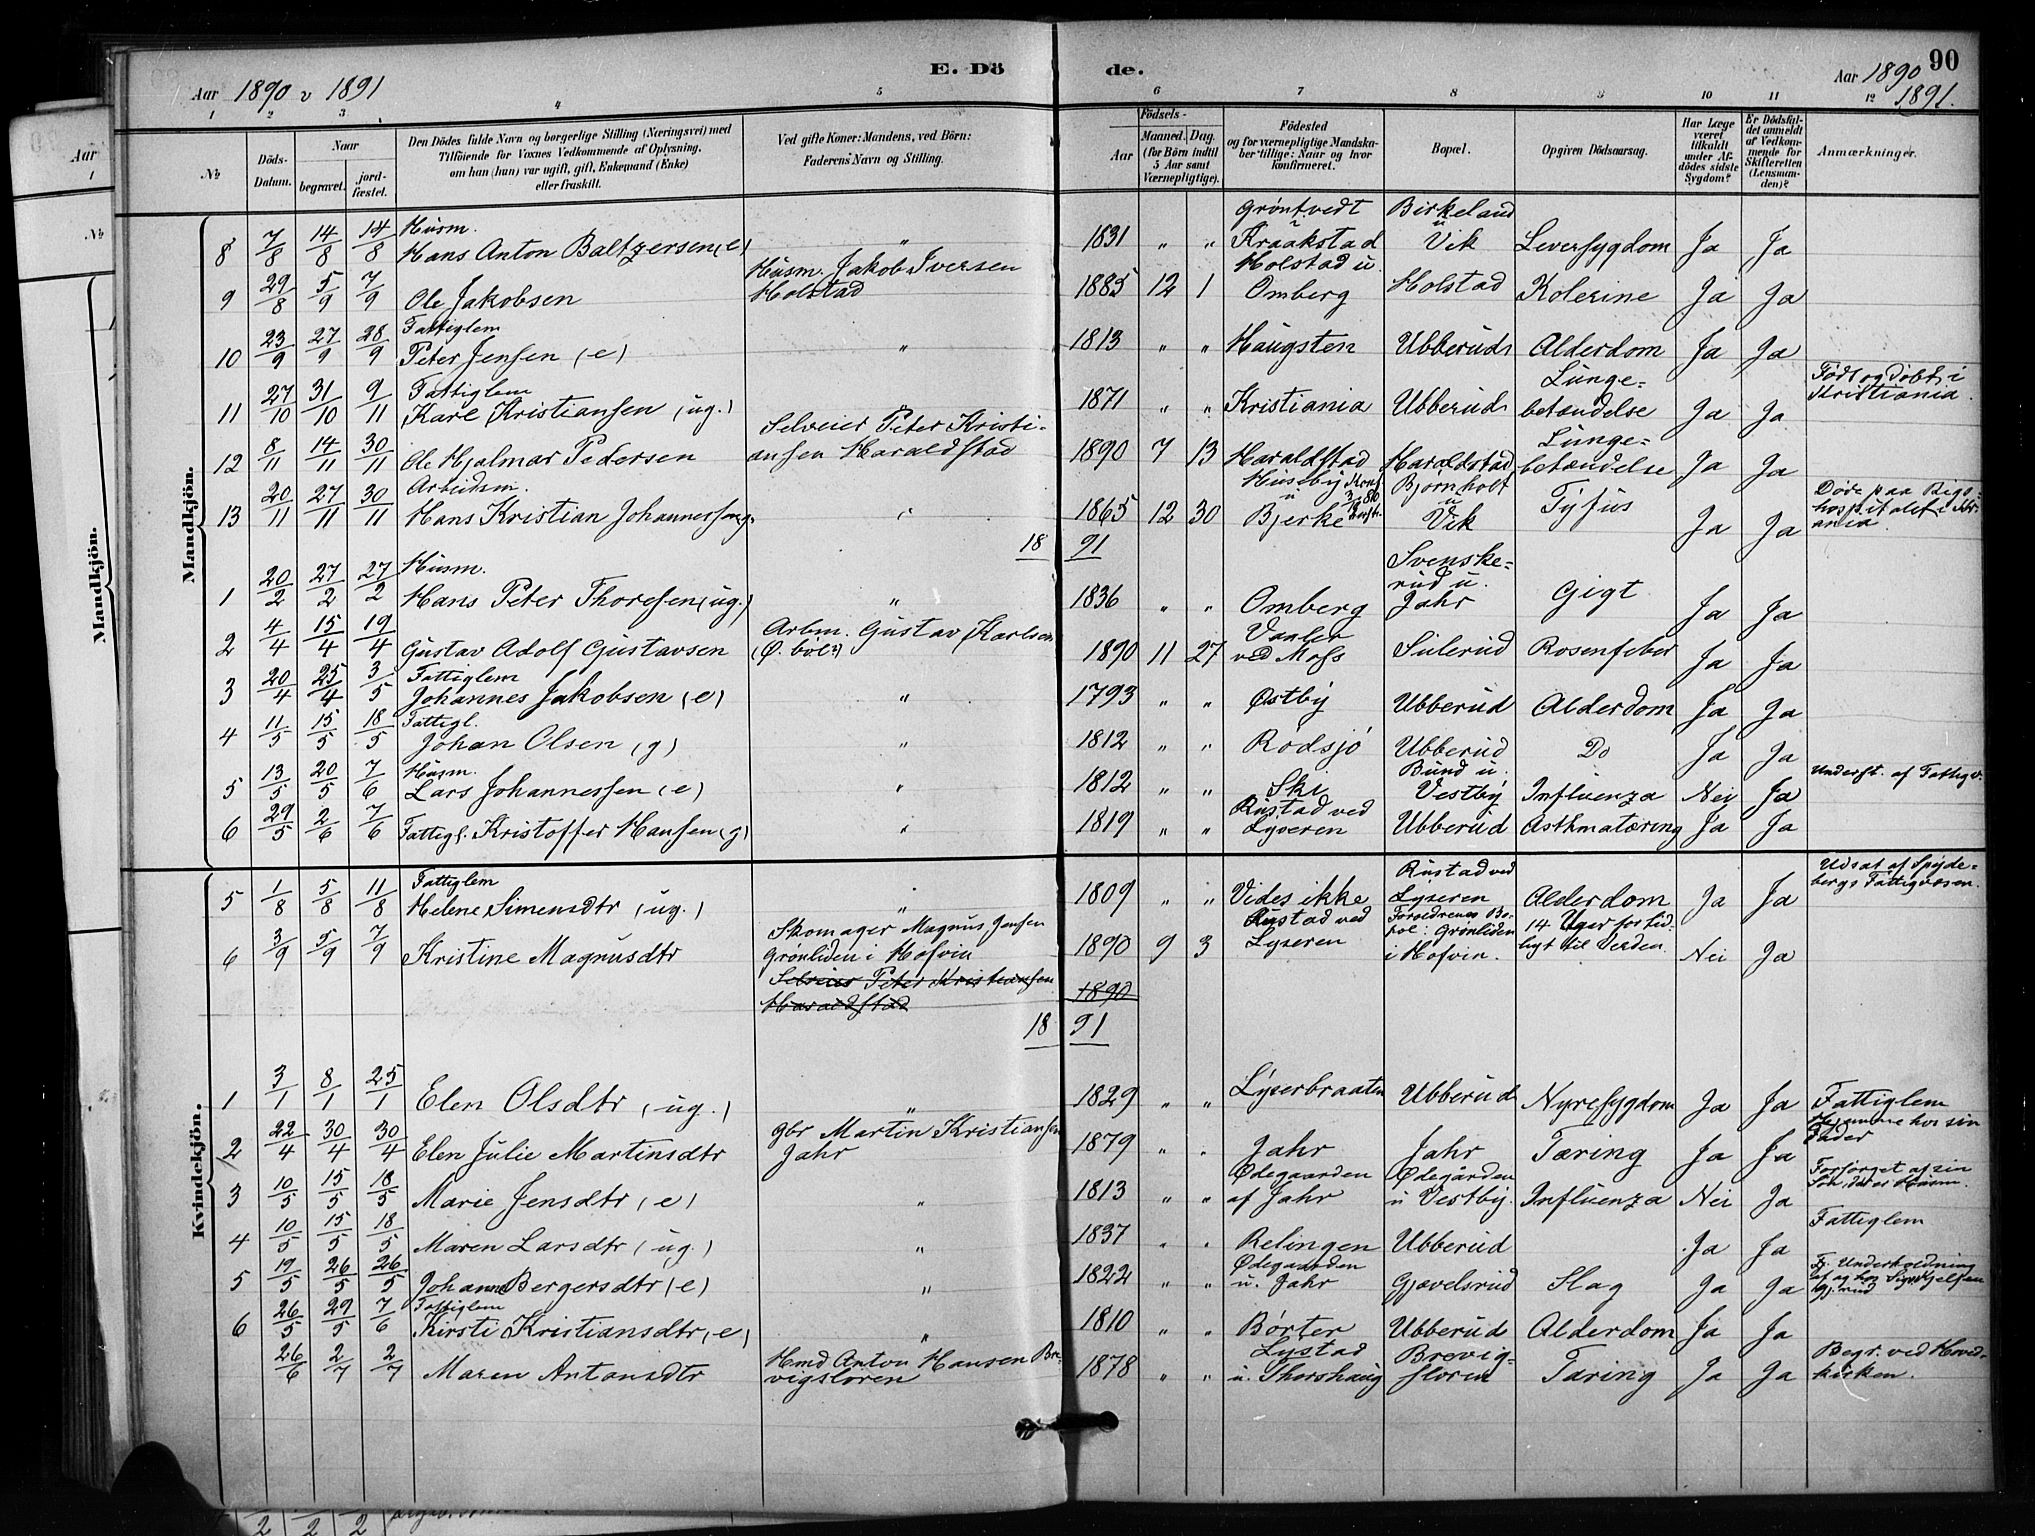 E. Dö de.
90
Aar 1890 & 1891
Aar 1890
1891.
1 2 3. 4 5 6 7 8 9 10 11 12
№
Döds-Datum.
Naar
begravet.
jord-fæstet.
Den Dödes fulde Navn og borgerlige Stilling (Næringsvei) med
Tilföiende for Voxnes Vedkommende af Oplysning,
om han (hun) var ugift, gift, Enkemand (Enke)
eller fraskilt.
Ved gifte Koner: Mandens, ved Börn:
Faderens Navn og Stilling.
Födsels-
Aar
Maaned. Dag.
(for Börn indtil
5 Aar samt
Værnepligtige).
Födested
og for værnepligtige Mandska-
ber tillige: Naar og hvor
konfirmeret.
Bopæl.
Opgiven Dödsaarsag.
Har Læge
været
tilkaldt
under Af-
dödes sidste
Sygdom?
Er Dödsfal-
det anmeldt
af Vedkom-
mende for
Skifteretten
(Lensman-
den)?
Anmærkninger.
Mandkjön.
8 7/8 14/8 14/8 Husm. Hans Anton Baltzersen (e) " 1831 " " Grøntvedt u Kraakstad Birkeland u Vik Leversygdom Ja Ja
9 29/8 5/9 7/9 Ole Jakobsen Husm. Jakob Iversen Holstad 1885 12 1 Holstad u. Omberg Holstad Kolerine Ja Ja
10 23/9 27/9 28/9 Fattiglem Peter Jensen (e) " 1813 " " Haugsten Ubberud Alderdom Ja Ja
11 27/10 31/10 9/11 Fattiglem Karl Kristiansen (ug.) " 1871 " " Kristiania Ubberud Lungebetændelse Ja Ja Født og døbt i Kristiania.
12 8/11 14/11 30/11 Ole Hjalmar Pedersen Selveier Peter Kristiansen Haraldstad 1890 7 13 Haraldstad Haraldstad Lungebetændelse Ja Ja
13 20/11 27/11 30/11 Arbeidsm. Hans Kristian Johannessen " 1865 12 30 Huseby u Bjerke Bjørnholt u Vik Tyfus Ja Ja Døde paa Rigshospitalet i
18 91
1 20/2 27/2 27/2 Husm. Hans Peter Thoresen (ug.) " 1836 " " Omberg Svenskerud u. Jahr Gigt Ja Ja
2 4/4 15/4 19/4 Gustav Adolf Gustavsen Arbm. Gustav Karlsen 1890 11 27 Vaaler ved Moss Sulerud Rosenfeber Ja Ja
3 20/4 25/4 3/5 Fattiglem Johannes Jakobsen (e) " 1793 " " Østby Ubberud Alderdom Ja Ja
4 11/5 15/5 18/5 Fattigl. Johan Olsen (g) " 1812 " " Rødsjø Ubberud Do Ja Ja
5 13/5 20/5 7/6 Husm. Lars Johannessen (e) " 1812 " " Ski Bund u. Vestby Influenza Nei Ja Underst. af Fattigv.
6 29/5 2/6 7/6 Fattigl. Kristoffer Hansen (g) " 1819 " " Rustad ved Lyseren Ubberud Asthmatæring Ja Ja
Kvindekjön.
5 1/8 5/8 11/8 Fattiglem Helene Simensdtr (ug.) " 1809 " " Vides ikke Rustad ved Lyseren Alderdom Ja Ja Udsat af Spydebergs Fattigvæsen.
6 3/9 5/9 7/9 Kristine Magnusdtr Skomager Magnus Jensen Grønliden i Hofvin 1890 9 3 Rustad ved Lyseren Forældrenes Bopæl: Grønliden i Hofvin. 14 Uger for tidligt til Verden. Nei Ja
Selveier Peter Kristiansen Haraldstad 1890
18 91
1 3/1 8/1 25/1 Elen Olsdtr (ug.) " 1829 " " Lyserbraaten Ubberud Nyresygdom Ja Ja Fattiglem
2 22/4 30/4 30/4 Elen Julie Martinsdtr gbr Martin Kristiansen Jahr 1879 " " Jahr Jahr Tæring Ja Ja Hjemme hos sin Fader
3 10/5 15/5 18/5 Marie Jensdtr (e) " 1813 " " Ødegaarden af Jahr Ødegården u Vestby. Influenza Nei Ja Forsørget af sin Søn, der er Husm.
4 10/5 15/5 18/5 Maren Larsdtr (ug.) " 1837 " " Relingen Ubberud Ja Ja Fattiglem
5 19/5 26/5 26/5 Johanne Bergersdtr (e) " 1822 " " Ødegaarden u. Jahr Gjævelsrud Slag Ja Ja Underholdning af og hos
6 26/5 29/5 7/6 Fattiglem Kirsti Kristiansdtr (e) " 1810 " " Børter Ubberud Alderdom Ja Ja
26/6 2/7 2/7 Maren Antonsdtr Hmd Anton Hansen Brevigsloren 1878 " " Lystad u. Thorshaug Brevigsloren Tæring Ja Ja Begr. ved Hovedkirken.
Aar
1
№
Mandkjön.
2 2 2